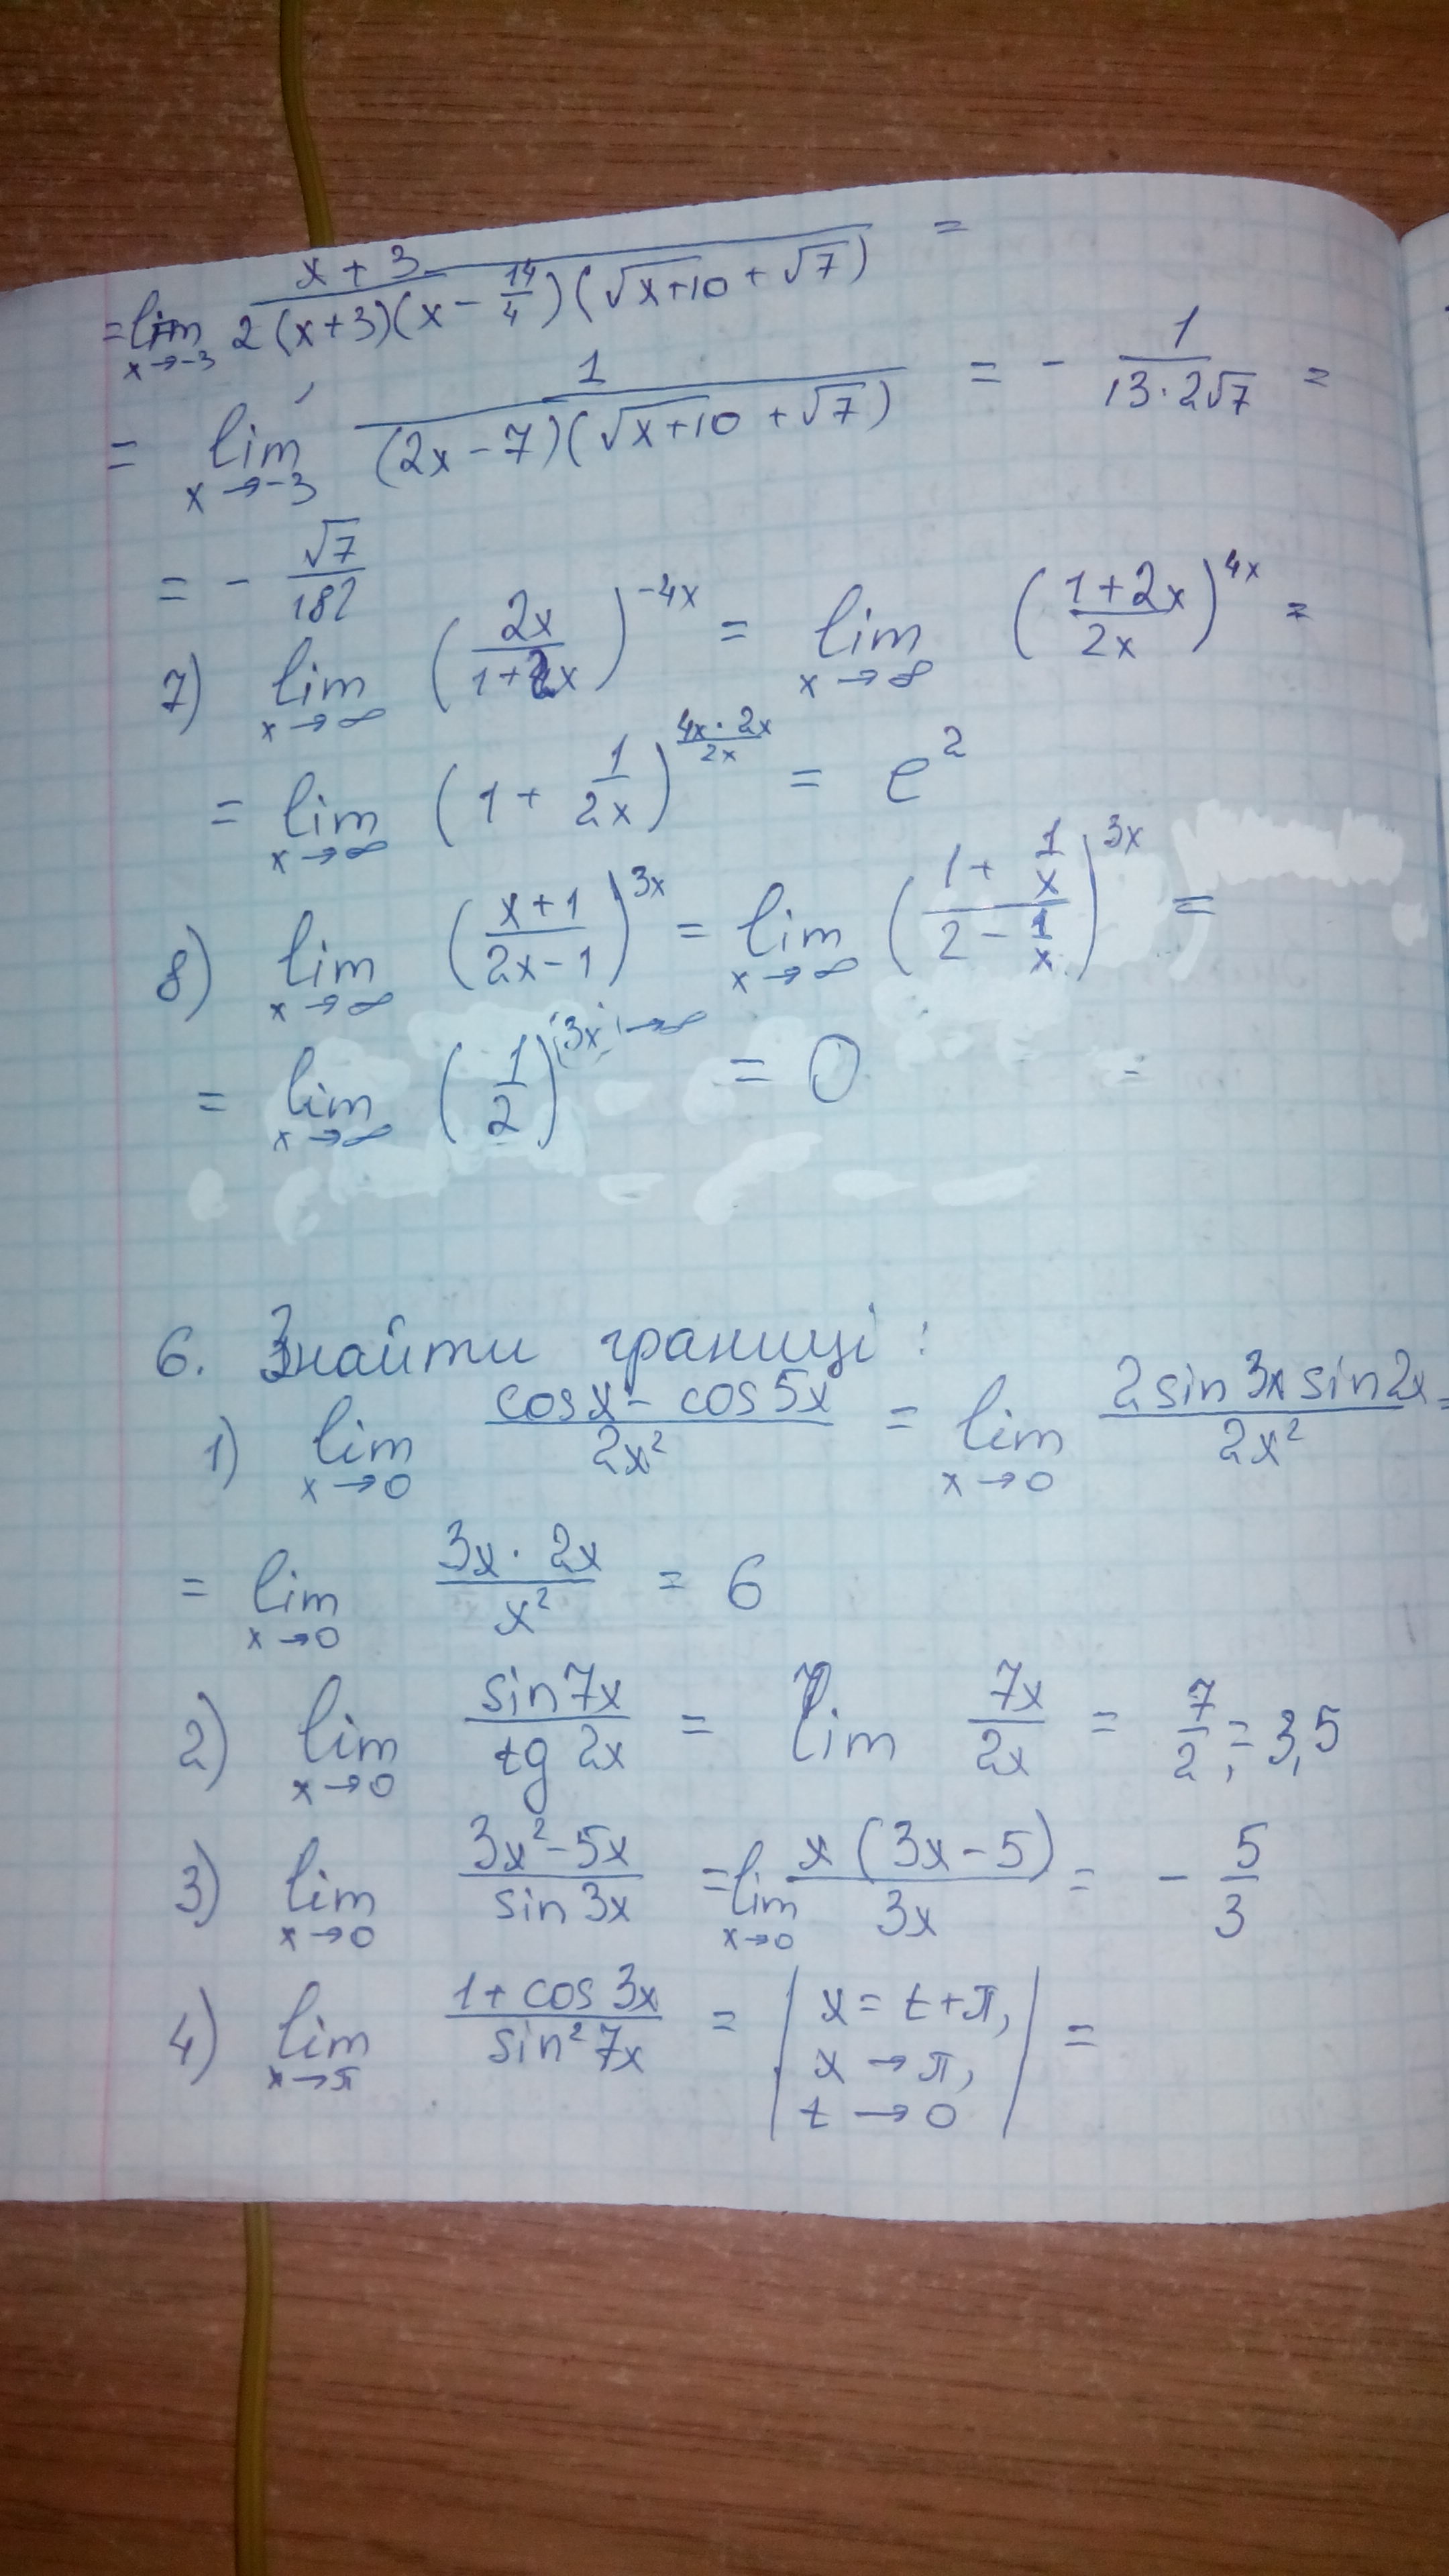 = lim x→-3 (x + 3)/(2(x+3)(x - 14/4)(√x+10 + √7)) =
= lim x→-3 1/((2x - 7)(√x+10 + √7)) = - 1/(13·2√7) =
= - √7/182
7) lim x→∞ (2x/(1+2x))^(-4x) = lim x→∞ ((1+2x)/2x)^(4x) =
= lim x→∞ (1 + 1/2x)^(4x·2x/2x) = e^2
8) lim x→∞ ((x+1)/(2x-1))^(3x) = lim x→∞ ((1 + 1/x)/(2 - 1/x))^(3x) =
= lim x→∞ (1/2)^(3x→∞) = 0 =
6. Знайти границі :
1) lim x→0 (cosx - cos5x)/2x² = lim x→0 (2sin3x sin2x)/2x² =
= lim x→0 (3x · 2x)/x² = 6
2) lim x→0 sin7x/tg 2x = lim 7x/2x = 7/2 = 3,5
3) lim x→0 (3x²-5x)/sin3x = lim x→0 x(3x-5)/3x = - 5/3
4) lim x→π (1+cos3x)/sin²7x = | x = t+π, x → π, t → 0 | =